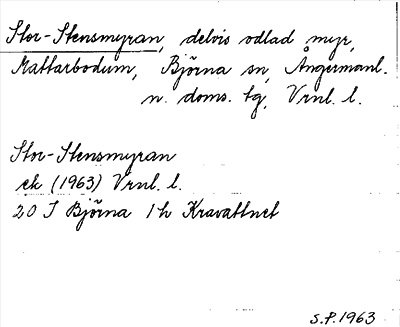 Stor-Stensmyran, delvis odlad myr,
Mattarbodum, Björna sn, Ångermanl.
n. doms. tg, Vrnl. l.
Stor-Stensmyran
ek (1963) Vrnl. l.
20 I Björna 1 h Kravattnet
S.P. 1963